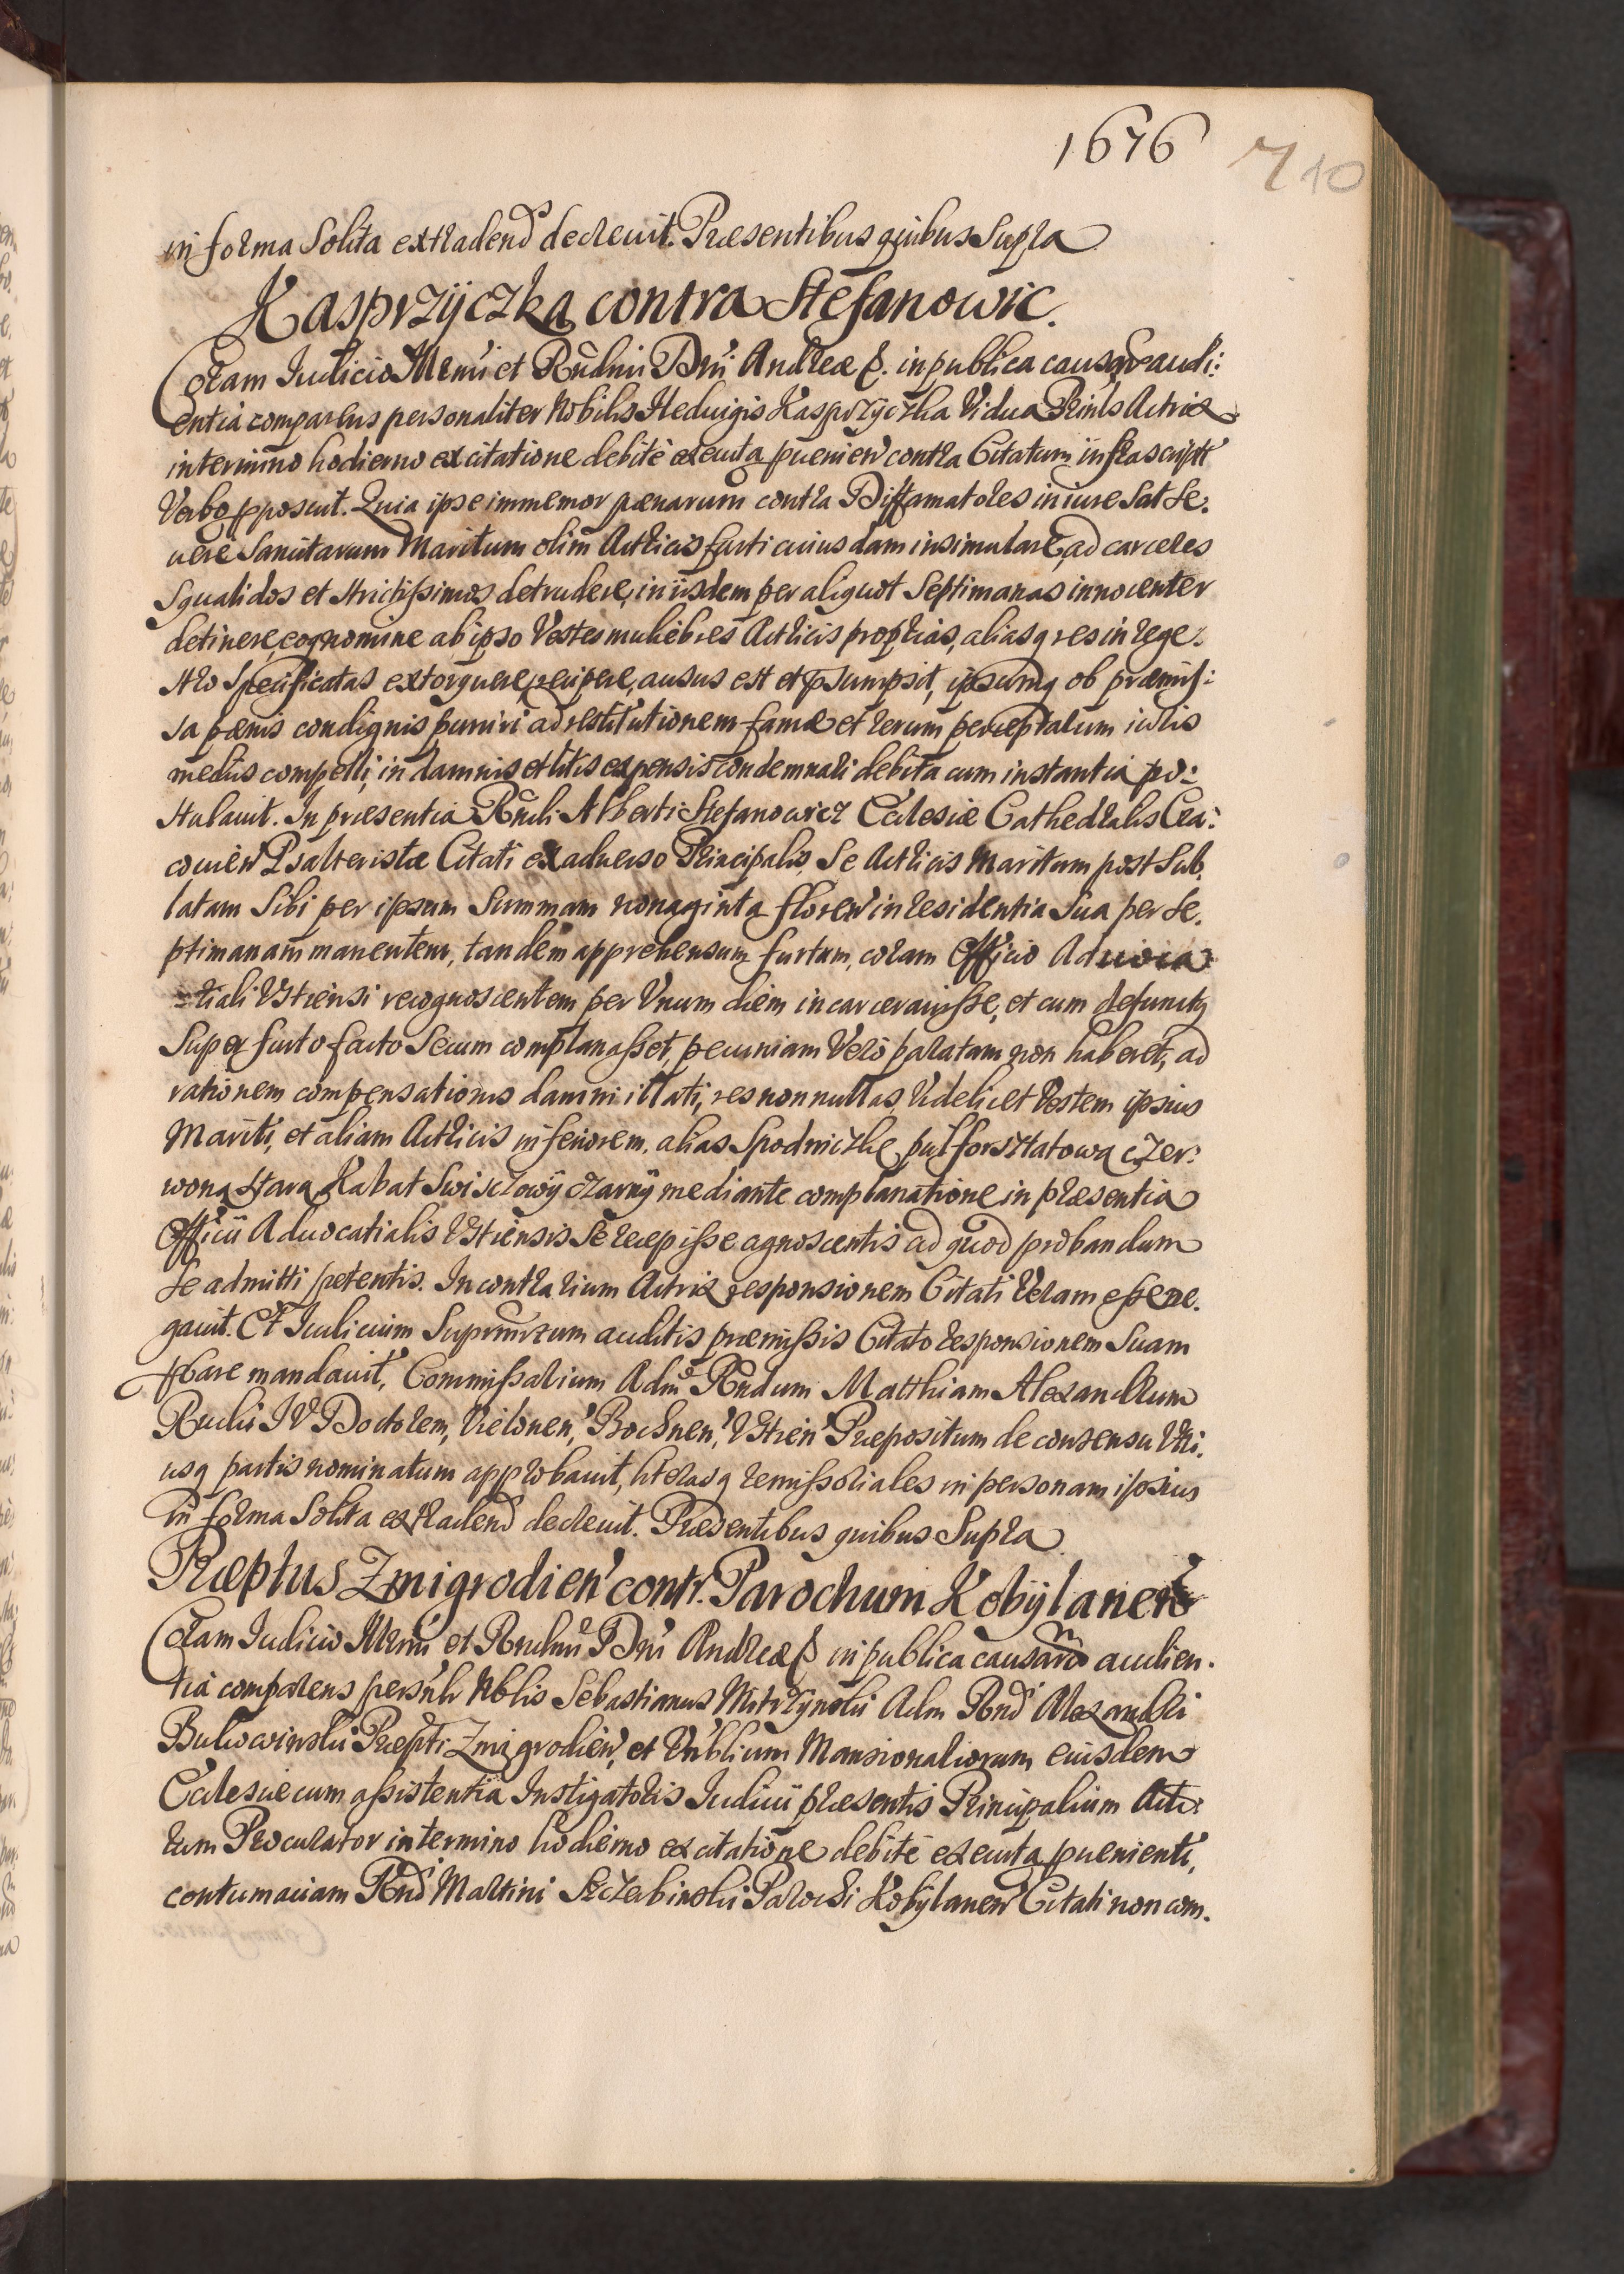 1676
710
in forma Solita extradend decreuit. Præsentibus quibus Supra
Kasprzyczka contra Stefanowic.
Coram Iudicio Illrmi et Rndmi Dni Andreæ &. in publica causar audi:
entia comparens personaliter Nobilis Heduigis Kasprzyczka Vidua Prinls Actrix
in termino hodierno ex citatione debite executa puenien contra Citatum infrascript
Verbo pposuit. Quia ipse immemor pœnarum contra Diffamatores in iure Sat Se:
uere Sancitarum Maritum olim Actricis furti cuiusdam insimulare, ad carceres
Squalidos et strictissimos detrudere, in iisdem per aliquot Septimanas innocenter
detinere, eoq nomine ab ipso Vestes muliebres Actricis proprias, aliasq res in rege:
stro Specificatas extorquere, recipere, ausus est et psumpsit, ipsumq ob præmis:
sa pœnis condignis puniri ad restitutionem famæ et rerum perceptarum iuris
mediis compelli, in damnis et litis expensis condemnari debita cum instantia po:
stulauit. In præsentia Rndi Alberti Stefanowicz Ecclesiæ Cathedralis Cra:
couien Psalteristæ Citati ex aduerso Principalis, Se Actricis Maritum post Sub.
latam Sibi per ipsum Summam nonaginta floren in residentia Sua per Se.
ptimanam manentem, tandem apprehensum furtum, coram Officio Aduoca
tiali Vstiensi recognoscentem per Vnum diem incarcerauisse, et cum defunctq
Super furto facto Secum complanasset, pecuniam Vero paratam non haberet, ad
rationem compensationis damni illati, res nonnullas Videlicet Vestem ipsius
Mariti, et aliam Actricis inferiorem, alias Spodniczke pułforsztatowa czer:
wona Stara Kabat Swisczowy czarny mediante complanatione in præsentia
Officii Aduocatialis Vstiensis Se recepisse agnoscentis ad quod probandum
Se admitti petentis. In contrarium Actrix responsionem Citati Veram esse ne.
gauit. Et Iudicium Suprmzum auditis præmissis Citato responsionem Suam
pbare mandauit, Commissarium Adm Rndum Matthiam Alexandrum
Rudis I V Doctorem, Vielonen, Bochnen, Vstien Præpositum de consensu Vtri.
usq partis nominatum approbauit, literasq remissoriales in personam ipsius
in forma Solita extradend decreuit. Præsentibus quibus Supra
Præptus Zmigrodien contr. Parochum Kobylanen
Coram Iudicio Illrmi et Rndmi Dni Andreæ & in publica causar audien.
tia comparens persnlr Nblis Sebastianus Mitrzynski Adm Rnd Alexandri
Bukowinski Præpti Zmigrodien, et Vnblium Mansionaliorum eiusdem
Ecclesiæ cum assistentia Instigatoris Iudicii præsentis Principalium Acto:
rum Procurator in termino hodierno ex citatione debite executa puenienti,
contumaciam Rnd Martini Szczerbinski Parochi Kobylanen Citati non com.